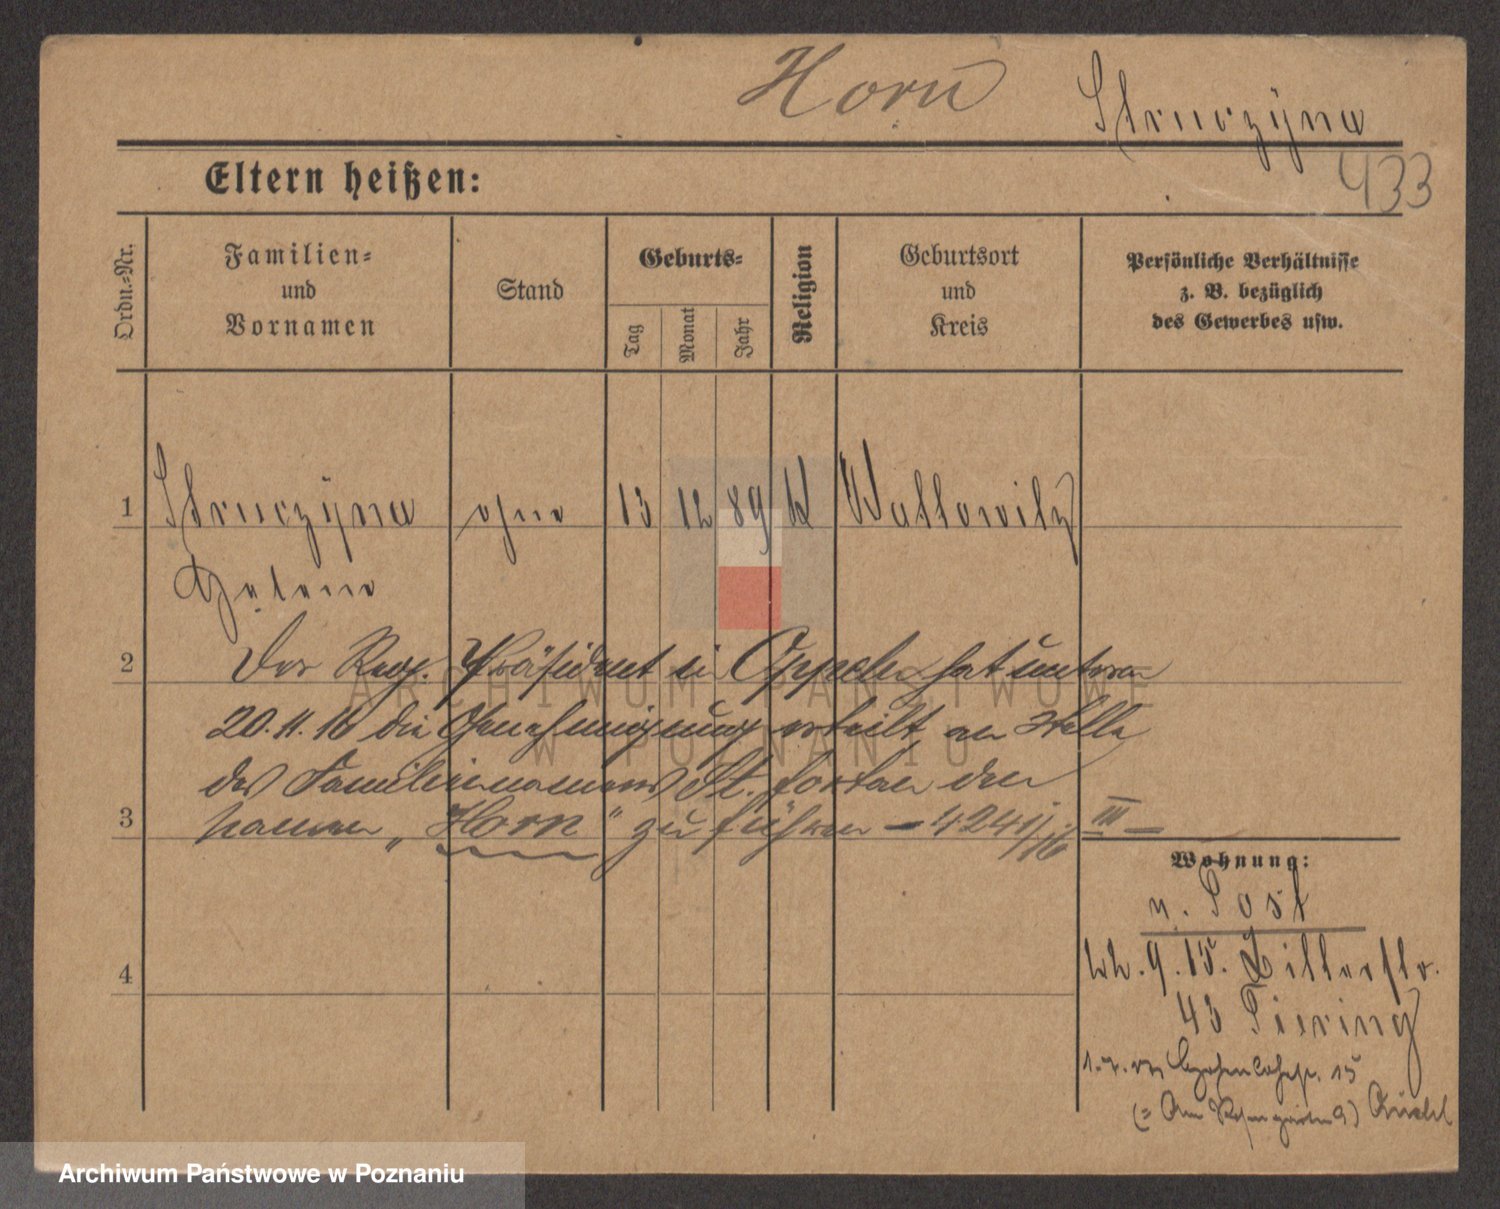 Horn Struczyna
433
Eltern heißen:
Ordn.=Nr.
Familien=
und
Vornamen
Stand
Geburts=
Tag
Monat
Jahr
Religion
Geburtsort
und
Kreis
Persönliche Verhältnisse
z. B. bezüglich
des Gewerbes usw.
1 Struczyna ohne 13 12 89 k Wallowitz
Helene
2 Der Reg. Präsident in Oppeln hat unterm
20.11.16 die Genehmigung erteilt, an Stelle
des Familiennamens St. fortan den
3 Namen „Horn“ zu führen – 4241/16 III –
Wohnung:
n. Post
22.9.15. Bitterstr.
43 Piering
Hohenlohestr. 15
(= Am Rosengarten 9)
4
ARCHIWUM PAŃSTWOWE
W POZNANIU
Archiwum Państwowe w Poznaniu